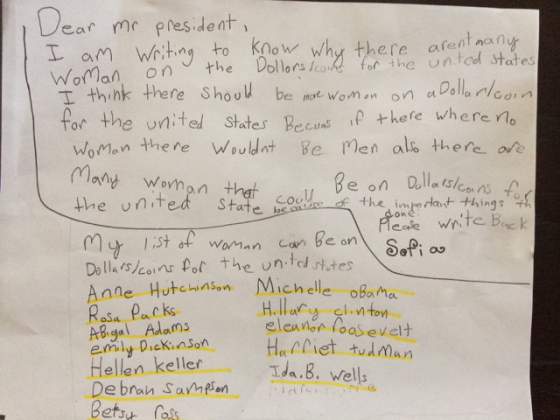 Dear mr president,
I am writing to know why there arent many
woman on the Dollars/coins for the united states
I think there should be more woman on a Dollar/coin
for the united states Becaus if there where no
woman there wouldnt Be Men also there are
Many woman that could Be on Dollars/coins for
the united state because of the important things th
done. Please write Back
Sofia
My list of woman can Be on
Dollars/coins for the united states
Anne Hutchinson
Rosa Parks
Abigal Adams
emily Dickinson
Hellen keller
Debrah sampson
Betsy ross
Michelle obama
Hillary clinton
eleanor roosevelt
Harriet tudman
Ida.B. wells